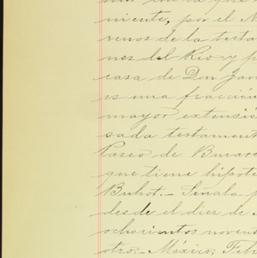 niente, por el
renos de la testa
nes del Rio y p
casa de Don Jav
es una fracción
mayor extensió
sada testament
Paseo de Bucare
que tiene hipote
Buhot.- Señala p
desde el diez de
ochocientos noven
otro.- México, Feb